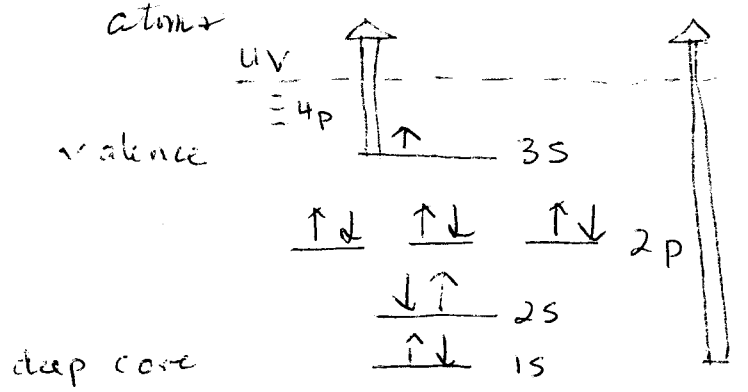 atoms
UV
4p
valence ↑ 3s
↑↓ ↑↓ ↑↓ 2p
↓↑ 2s
deep core ↑↓ 1s